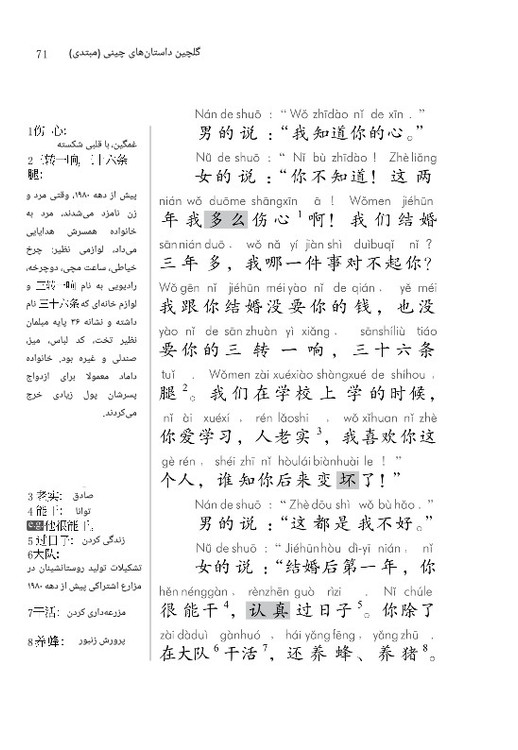 گلچین داستان‌های چینی (مبتدی) 71
Nán de shuō : “ Wǒ zhīdào nǐ de xīn . ”
男 的 说 ：“我 知道 你的 心。”
Nǚ de shuō : “ Nǐ bù zhīdào ! Zhè liǎng
女 的 说 ：“你 不 知道！ 这 两
nián wǒ duōme shāngxīn ā ! Wǒmen jiéhūn
年 我 多 么 伤 心 1 啊！ 我 们 结 婚
sān nián duō , wǒ nǎ yí jiàn shì duìbuqǐ nǐ ?
三 年 多，我 哪 一 件 事 对 不 起 你？
Wǒ gēn nǐ jiéhūn méi yào nǐ de qián , yě méi
我 跟 你 结 婚 没 要 你 的 钱，也 没
yào nǐ de sān zhuàn yì xiǎng , sānshíliù tiáo
要 你 的 三 转 一 响，三 十 六 条
tuǐ . Wǒmen zài xuéxiào shàngxué de shíhou ,
腿 2。 我 们 在 学 校 上 学 的 时 候，
nǐ ài xuéxí , rén lǎoshi , wǒ xǐhuan nǐ zhè
你 爱 学 习，人 老 实 3，我 喜 欢 你 这
gè rén , shéi zhī nǐ hòulái biànhuài le ! ”
个 人，谁 知 你 后 来 变 坏 了！”
Nán de shuō : “ Zhè dōu shì wǒ bù hǎo . ”
男 的 说 ：“这 都 是 我 不 好。”
Nǚ de shuō : “ Jiéhūn hòu dì-yī nián , nǐ
女 的 说：“结 婚 后 第 一 年，你
hěn nénggàn , rènzhēn guò rìzi . Nǐ chúle
很 能 干 4，认 真 过 日 子 5。你 除 了
zài dàduì gànhuó , hái yǎng fēng , yǎng zhū .
在 大 队 6 干 活 7，还 养 蜂、养 猪 8。
1 伤 心:
غمگین، با قلبی شکسته
2 三转一响, 三十六条
腿:
پیش از دهه ۱۹۸۰، وقتی مرد و
زن نامزد می‌شدند، مرد به
خانواده همسرش هدایایی
می‌داد. لوازمی نظیر: چرخ
خیاطی، ساعت مچی، دوچرخه،
رادیویی به نام 三转一响 و
لوازم خانه‌ای که 三十六条 نام
داشته و نشانه ۳۶ پایه مبلمان
نظیر تخت، کد لباس، میز،
صندلی و غیره بود. خانواده
داماد معمولا برای ازدواج
پسرشان پول زیادی خرج
می‌کردند.
3 老实: صادق
4 能干: توانا
他很能干.
5 过日子: زندگی کردن
6 大队:
تشکیلات تولید روستانشینان در
مزارع اشتراکی پیش از دهه ۱۹۸۰
7 干活: مزرعه‌داری کردن
8 养蜂: پرورش زنبور